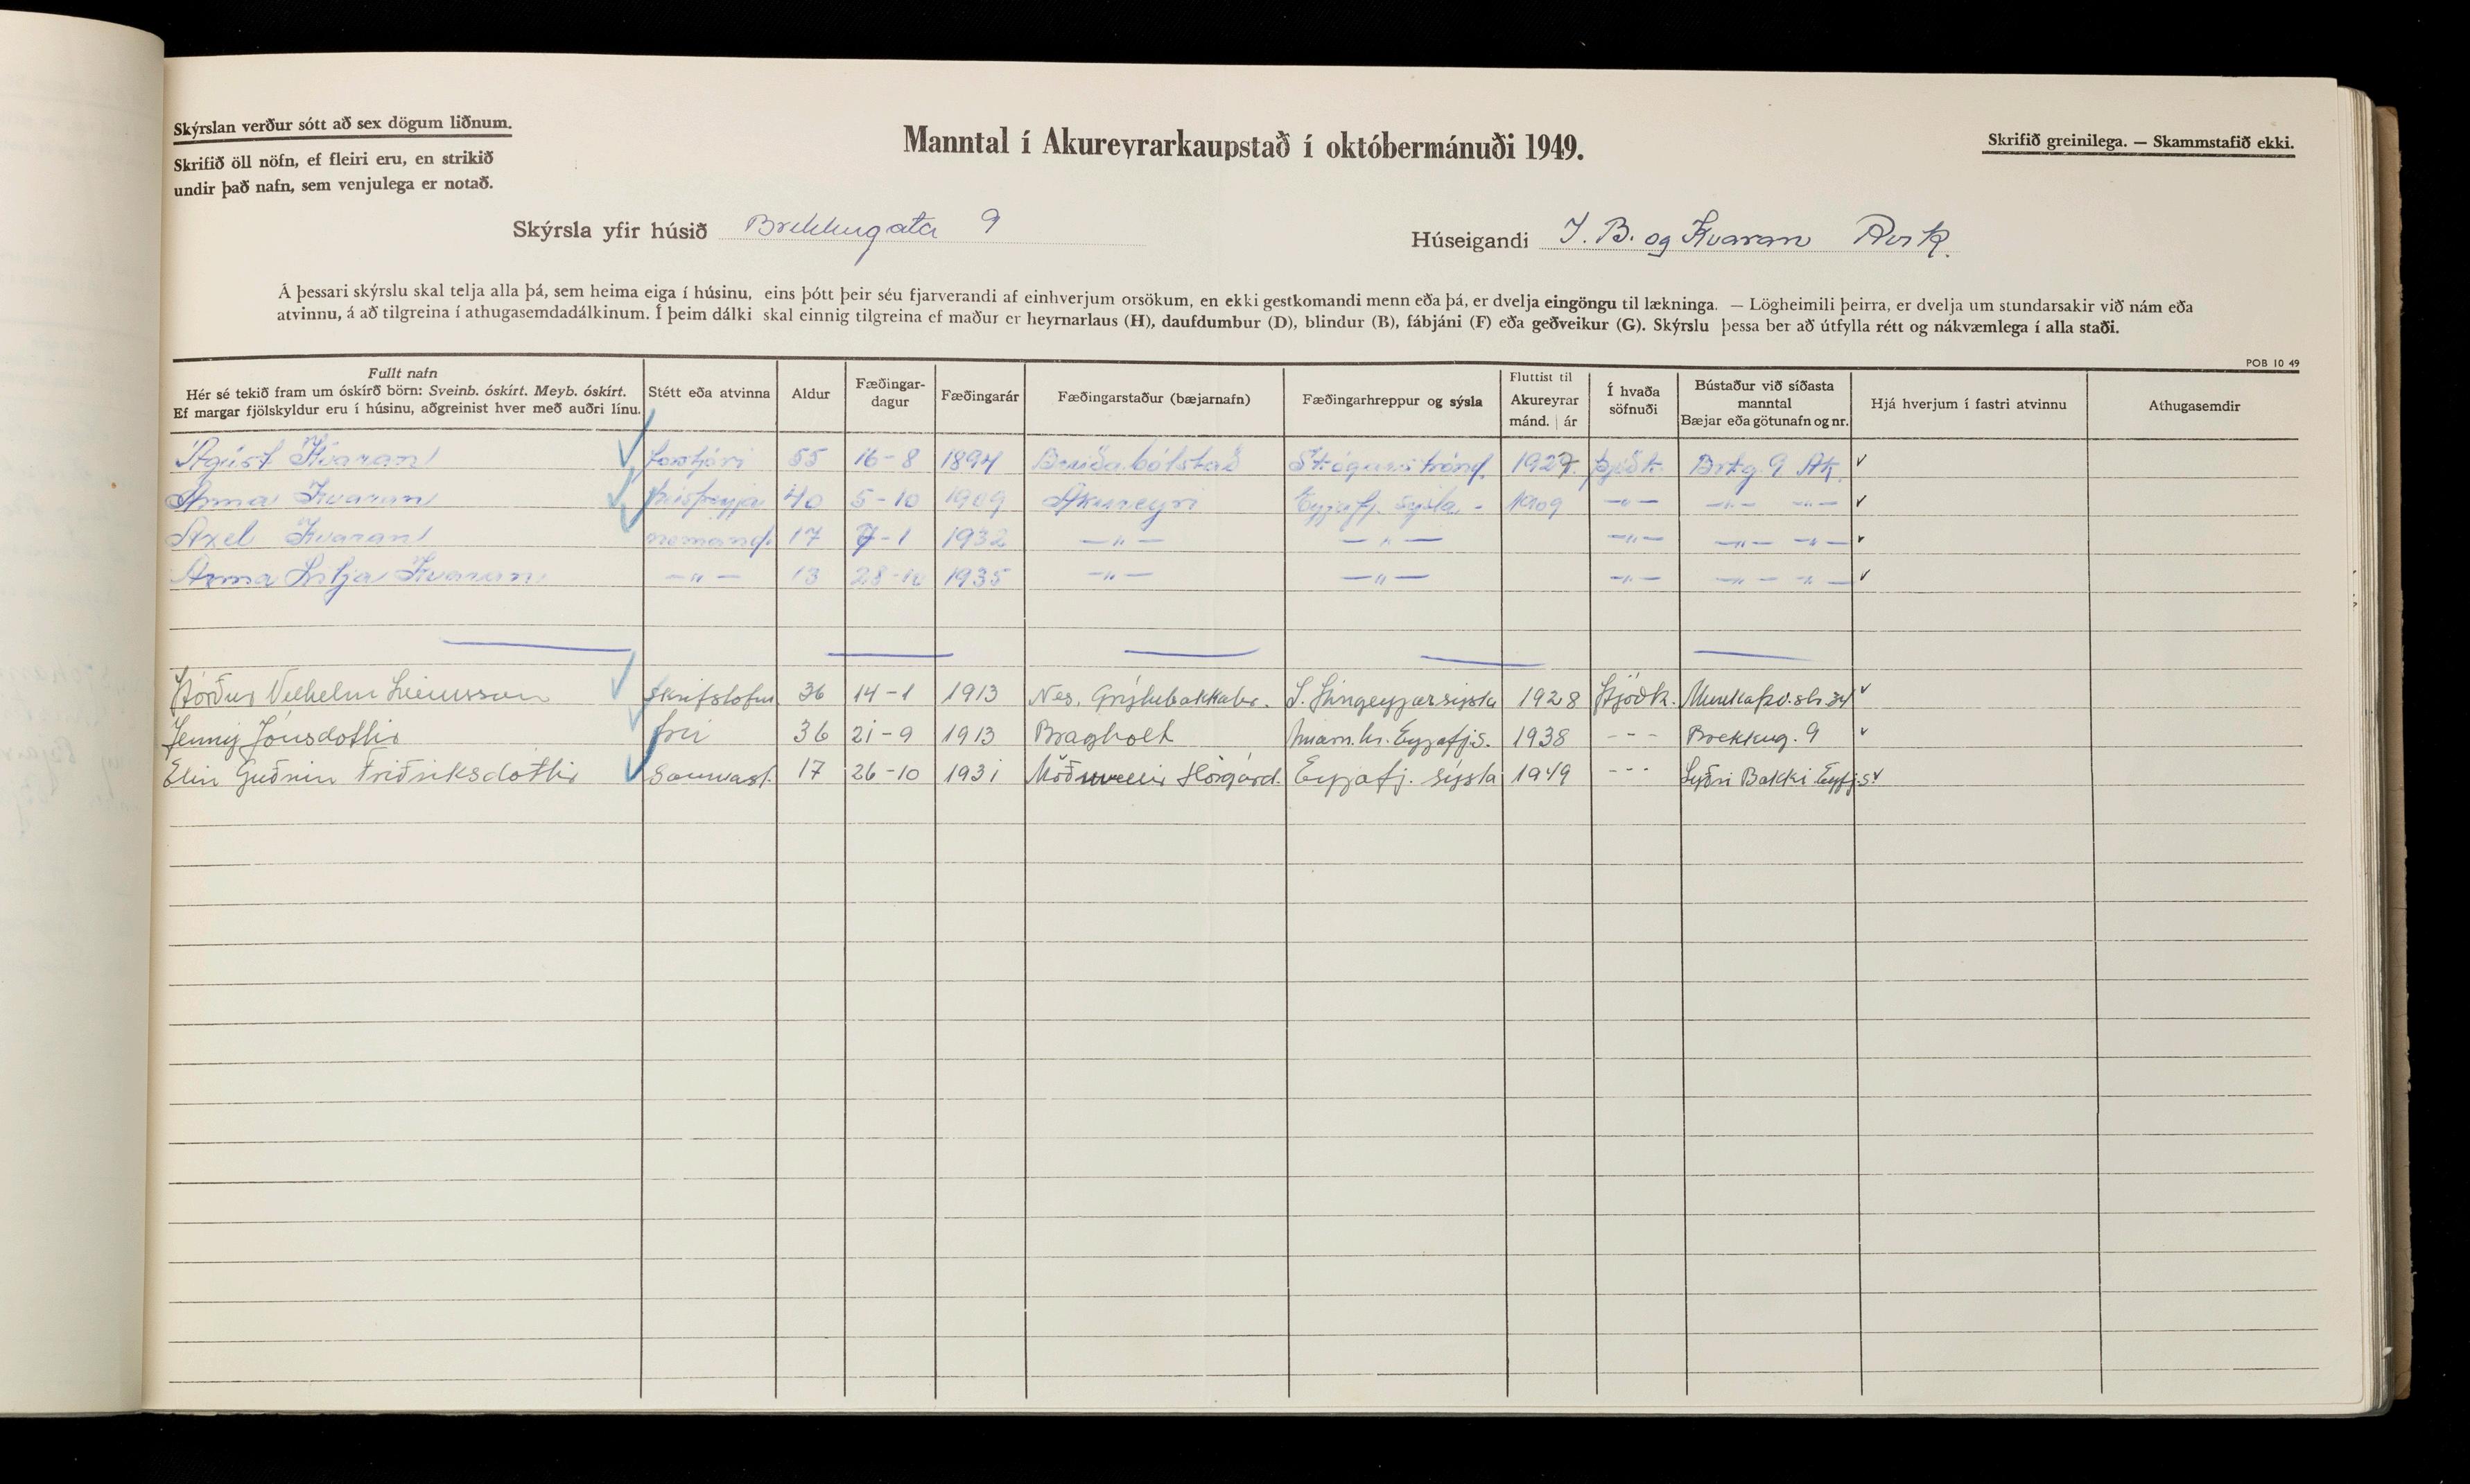 Skýrslan verður sótt að sex dögum liðnum.
Skrifið öll nöfn, ef fleiri eru, en strikið
undir það nafn, sem venjulega er notað.
Manntal í Akureyrarkaupstað í októbermánuði 1949.
Skrifið greinilega. — Skammstafið ekki.
Skýrsla yfir húsið Brekkugata 9
Húseigandi J. B. og Kvaran
Á þessari skýrslu skal telja alla þá, sem heima eiga í húsinu, eins þótt þeir séu fjarverandi af einhverjum orsökum, en ekki gestkomandi menn eða þá, er dvelja eingöngu til lækninga. — Lögheimili þeirra, er dvelja um stundarsakir við nám eða
atvinnu, á að tilgreina í athugasemdadálkinum. Í þeim dálki skal einnig tilgreina ef maður er heyrnarlaus (H), daufdumbur (D), blindur (B), fábjáni (F) eða geðveikur (G). Skýrslu þessa ber að útfylla rétt og nákvæmlega í alla staði.
POB 10 49
Fullt nafn
Hér sé tekið fram um óskírð börn: Sveinb. óskírt. Meyb. óskírt.
Ef margar fjölskyldur eru í húsinu, aðgreinist hver með auðri línu.
Stétt eða atvinna
Aldur
Fæðingar-
dagur
Fæðingarár
Fæðingarstaður (bæjarnafn)
Fæðingarhreppur og sýsla
Fluttist til
Akureyrar
mánd. | ár
Í hvaða
söfnuði
Bústaður við síðasta
manntal
Bæjar eða götunafn og nr.
Hjá hverjum í fastri atvinnu
Athugasemdir
Ágúst Kvaran forstjóri 55 16-8 1894 Breiðabólstað Skógarströnd 1927 þjóðk. Brkg. 9 Ak. ✓
Anna Kvaran húsfreyja 40 5-10 1909 Akureyri Eyjafj. sýsla - 1909 —"— —"— —"— ✓
Axel Kvaran nemand. 17 7-1 1932 —"— —"— —"— —"— —"— ✓
Anna Lilja Kvaran —"— 13 28-10 1935 —"— —"— —"— —"— —"— ✓
Vilhelm skrifstofum. 36 14-1 1913 Nes, Grýtubakkahr. S. Þingeyjarsýsla 1928 Þjóðk. Munkaþv.str. ✓
Jenný Jónsdóttir frú 36 21-9 1913 Bragholt Arnarn.hr. Eyjafj.s. 1938 --- Brekkug. 9 ✓
Elín Guðrún Friðriksdóttir saumast. 17 26-10 1931 Möðruvellir Hörgárd. Eyjafj. sýsla 1949 --- Syðri Bakki Eyfj.s. ✓